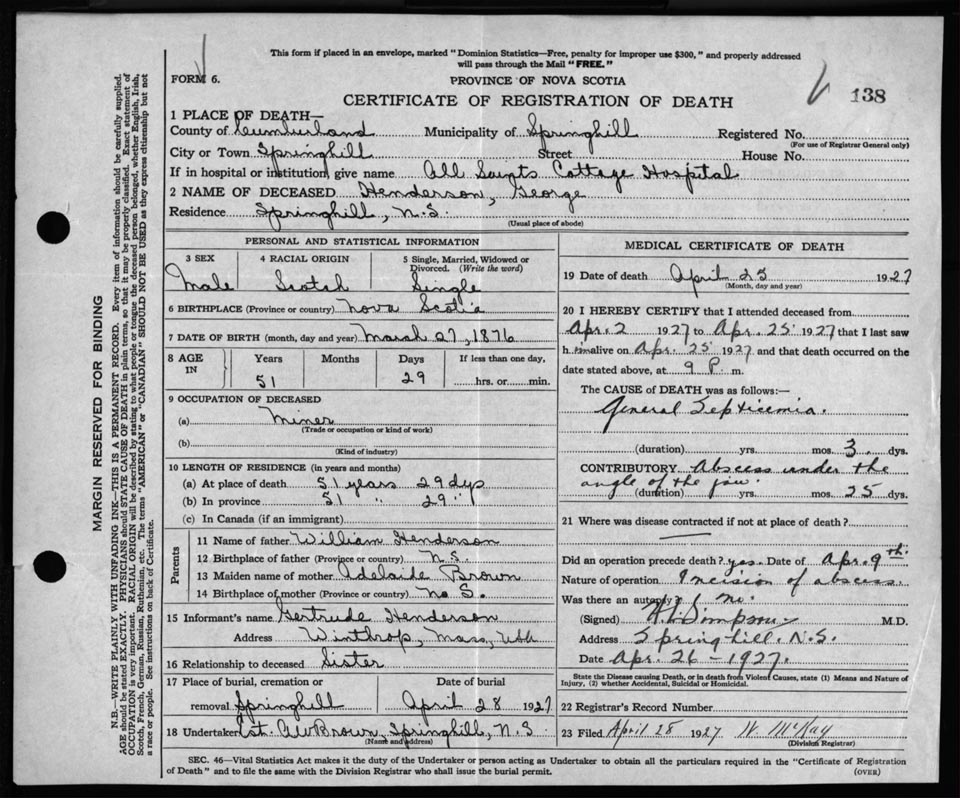 This form if placed in an envelope, marked "Dominion Statistics—Free, penalty for improper use $300," and properly addressed
will pass through the Mail "FREE."
FORM 6.
PROVINCE OF NOVA SCOTIA
CERTIFICATE OF REGISTRATION OF DEATH
138
1 PLACE OF DEATH—
County of Cumberland Municipality of Springhill Registered No.
(For use of Registrar General only)
City or Town Springhill Street House No.
If in hospital or institution, give name All Saints Cottage Hospital
2 NAME OF DECEASED Henderson, George
Residence Springhill, N.S.
(Usual place of abode)
PERSONAL AND STATISTICAL INFORMATION
3 SEX 4 RACIAL ORIGIN 5 Single, Married, Widowed or
Divorced. (Write the word)
Male Scotch Single
6 BIRTHPLACE (Province or country) Nova Scotia
7 DATE OF BIRTH (month, day and year) March 27, 1876
8 AGE IN Years Months Days If less than one day,
51 29 hrs. or min.
9 OCCUPATION OF DECEASED
(a) Miner
(Trade or occupation or kind of work)
(b)
(Kind of industry)
10 LENGTH OF RESIDENCE (in years and months)
(a) At place of death 51 years 29 dys
(b) In province 51 " 29 "
(c) In Canada (if an immigrant)
Parents
11 Name of father William Henderson
12 Birthplace of father (Province or country) N.S.
13 Maiden name of mother Adelaide Brown
14 Birthplace of mother (Province or country) N.S.
15 Informant's name Gertrude Henderson
Address Winthrop, Mass,
16 Relationship to deceased Sister
17 Place of burial, cremation or Date of burial
removal Springhill April 28 1927
18 Undertaker Brown, Springhill, N.S
(Name and address)
MEDICAL CERTIFICATE OF DEATH
19 Date of death April 25 1927
(Month, day and year)
20 I HEREBY CERTIFY that I attended deceased from
Apr. 2 1927 to Apr. 25 1927 that I last saw
him alive on Apr. 25 1927 and that death occurred on the
date stated above, at 9 P. m.
The CAUSE of DEATH was as follows:—
General Septicemia.
(duration) yrs. mos. 3 dys.
CONTRIBUTORY Abscess under the
angle of the jaw.
(duration) yrs. mos. 25 dys.
21 Where was disease contracted if not at place of death?
Did an operation precede death? yes. Date of Apr. 9th.
Nature of operation Incision of abscess
Was there an autopsy? no.
(Signed) Simpson M.D.
Address Springhill, N.S.
Date Apr. 26 - 1927.
State the Disease causing Death, or in death from Violent Causes, state (1) Means and Nature of
Injury, (2) whether Accidental, Suicidal or Homicidal.
22 Registrar's Record Number
23 Filed April 28 1927 W. McKay
(Division Registrar)
SEC. 46—Vital Statistics Act makes it the duty of the Undertaker or person acting as Undertaker to obtain all the particulars required in the "Certificate of Registration
of Death" and to file the same with the Division Registrar who shall issue the burial permit.
(OVER)
MARGIN RESERVED FOR BINDING
N.B.—WRITE PLAINLY WITH UNFADING INK—THIS IS A PERMANENT RECORD. Every item of information should be carefully supplied.
AGE should be stated EXACTLY. PHYSICIANS should STATE CAUSE OF DEATH in plain terms, so that it may be properly classified. Exact statement of
OCCUPATION is very important. RACIAL ORIGIN will be described by stating to what people or tongue the deceased person belonged, whether English, Irish,
Scotch, French, German, Russian, Ruthenian, etc. The terms "AMERICAN" or "CANADIAN" SHOULD NOT BE USED as they express citizenship but not
a race or people. See instructions on back of Certificate.